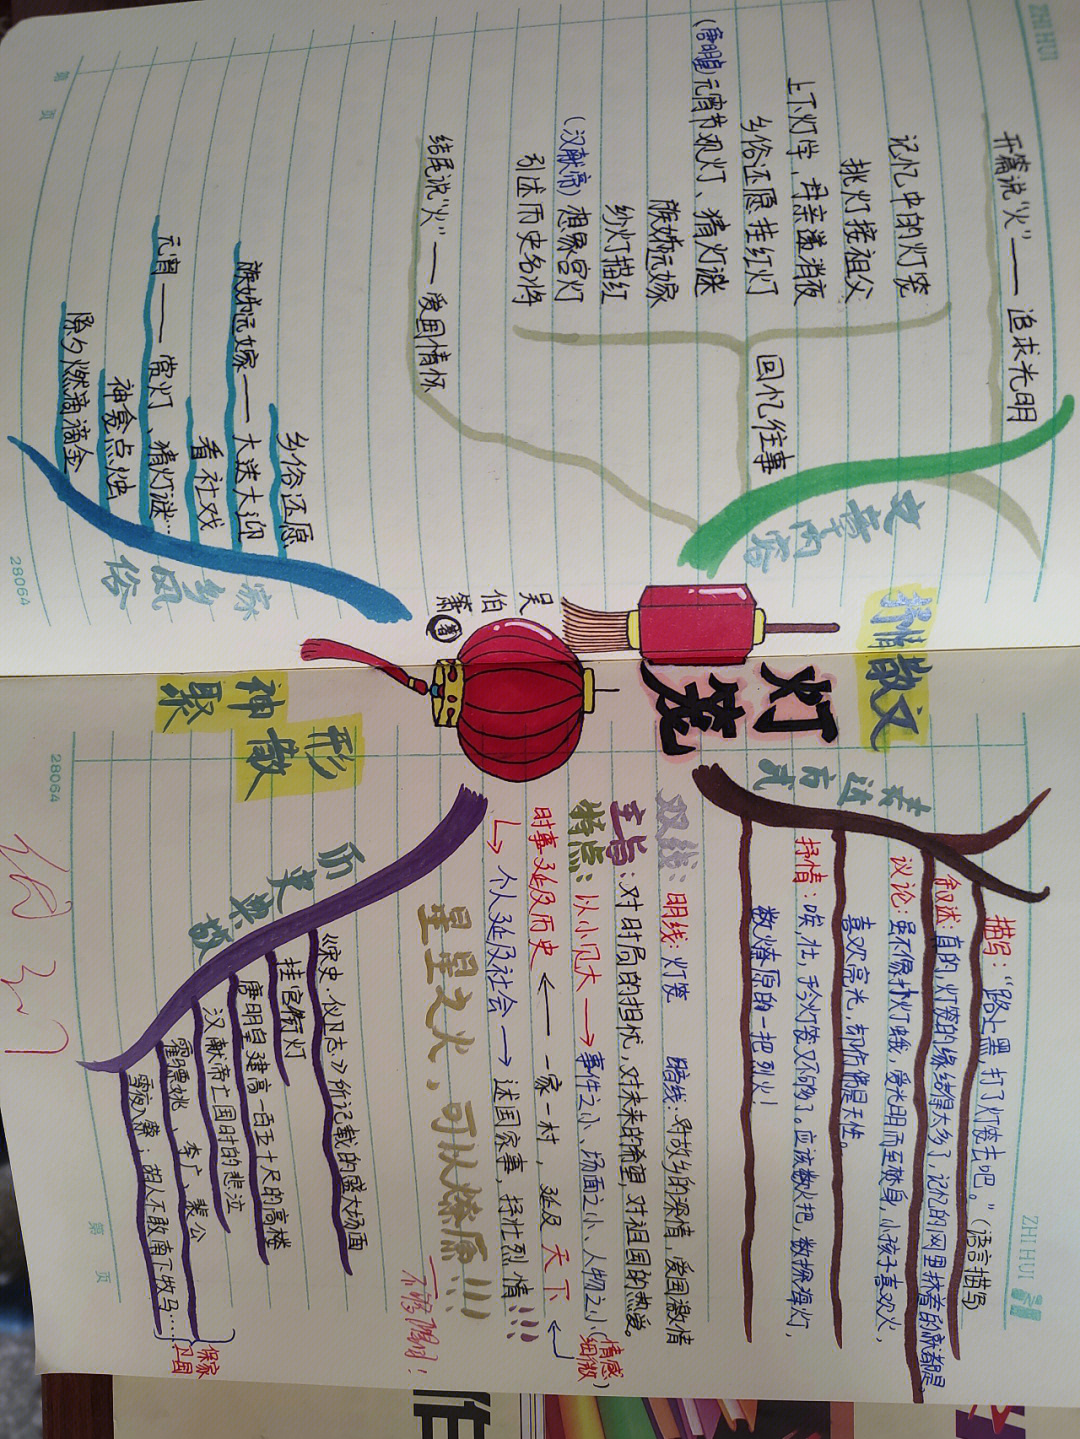 ZHI HUI
抒情散文
灯笼
吴伯箫
著
文章内容
开篇说“火”——追求光明
回忆往事
记忆中的灯笼
挑灯接祖父
上下灯学,母亲递消夜
乡俗还愿挂红灯
(唐明皇)元宵节观灯、猜灯谜
族姊远嫁
纱灯描红
(汉献帝)想象宫灯
引述历史名将
结尾说“火”——爱国情怀
家乡风俗
乡俗还愿
族姊远嫁——大送大迎
看社戏
元宵——赏灯、猜灯谜…
神龛点烛
除夕燃滴滴金
第 页
28064
ZHI HUI
表达方式
描写:“路上黑,打了灯笼去吧。”(语言描写
叙述:真的灯笼的缘结得太多了,记忆的网里挂着的就都是。
议论:虽不像扑灯蛾,爱光明而至焚身,小孩子喜欢火,
喜欢亮光,却仿佛是天性。
抒情:唉,壮,于今灯笼又不够了。应该数火把,数探海灯,
数燎原的一把烈火!
双线:明线:灯笼 暗线:对故乡的深情,爱国激情
主旨:对时局的担忧,对未来的希望,对祖国的热爱。
特点:以小见大→事件之小、场面之小、人物之小(情感细微)
时事延及历史←一家一村,延及天下
个人延及社会→述国家事,抒壮烈情!!!
星星之火,可以燎原!!!
形散
神聚
历史典故
《宋史·仪卫志》所记载的盛大场面
挂官衔灯
唐明皇建高一百五十尺的高楼
汉献帝亡国时的悲泣
霍骠姚、李广、裴公
雪夜入蔡:胡人不敢南下牧马…
保家
卫国
第 页
28064
作